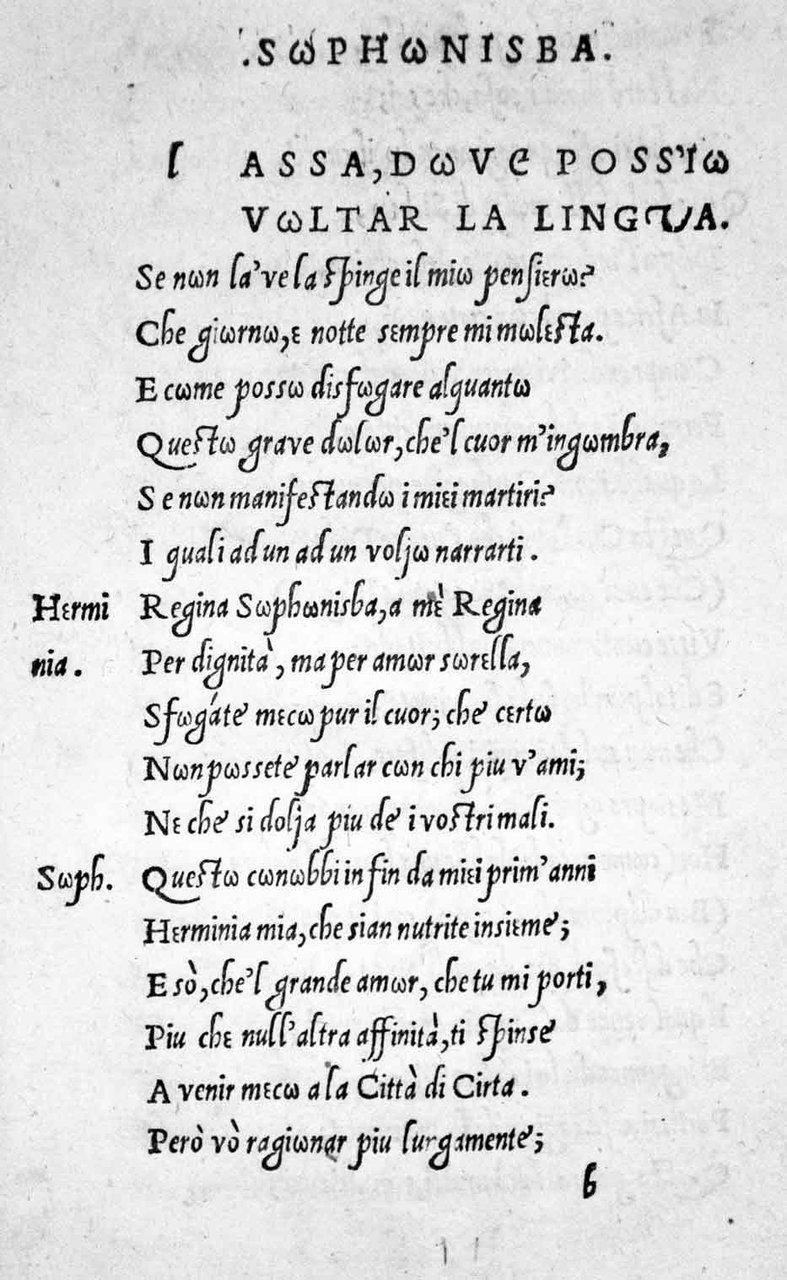 .SωPHωNISBA.
l ASSA, DωVE POSS'Iω
VωLTAR LA LINGUA.
Se nωn la 've la spinge il miω pensierω?
Che giωrnω, ε notte sεmpre mi mωlεsta.
E cωme possω disfωgare alquantω
Questω grave dωlωr, che 'l cuor m'ingωmbra,
Se nωn manifestandω i miεi martiri?
I quali ad un ad un voljω narrarti.
Hεrmi Regina Sωphωnisba, a mὲ Regina
nia. Per dignità, ma per amωr sωrεlla,
Sfωgáte mεcω pur il cuor; che cεrtω
Nωn pωssete parlar cωn chi piu v'ami;
Nε che si dolja piu de i vostri mali.
Sωph. Questω cωnωbbi in fin da miεi prim'anni
Hεrminia mia, che sian nutrite insiεme;
E sò, che 'l grande amωr, che tu mi porti,
Piu chε null'altra affinità, ti spinse
A venir mεcω a la Città di Cirta.
Però vò ragiωnar piu lurgamente;
b